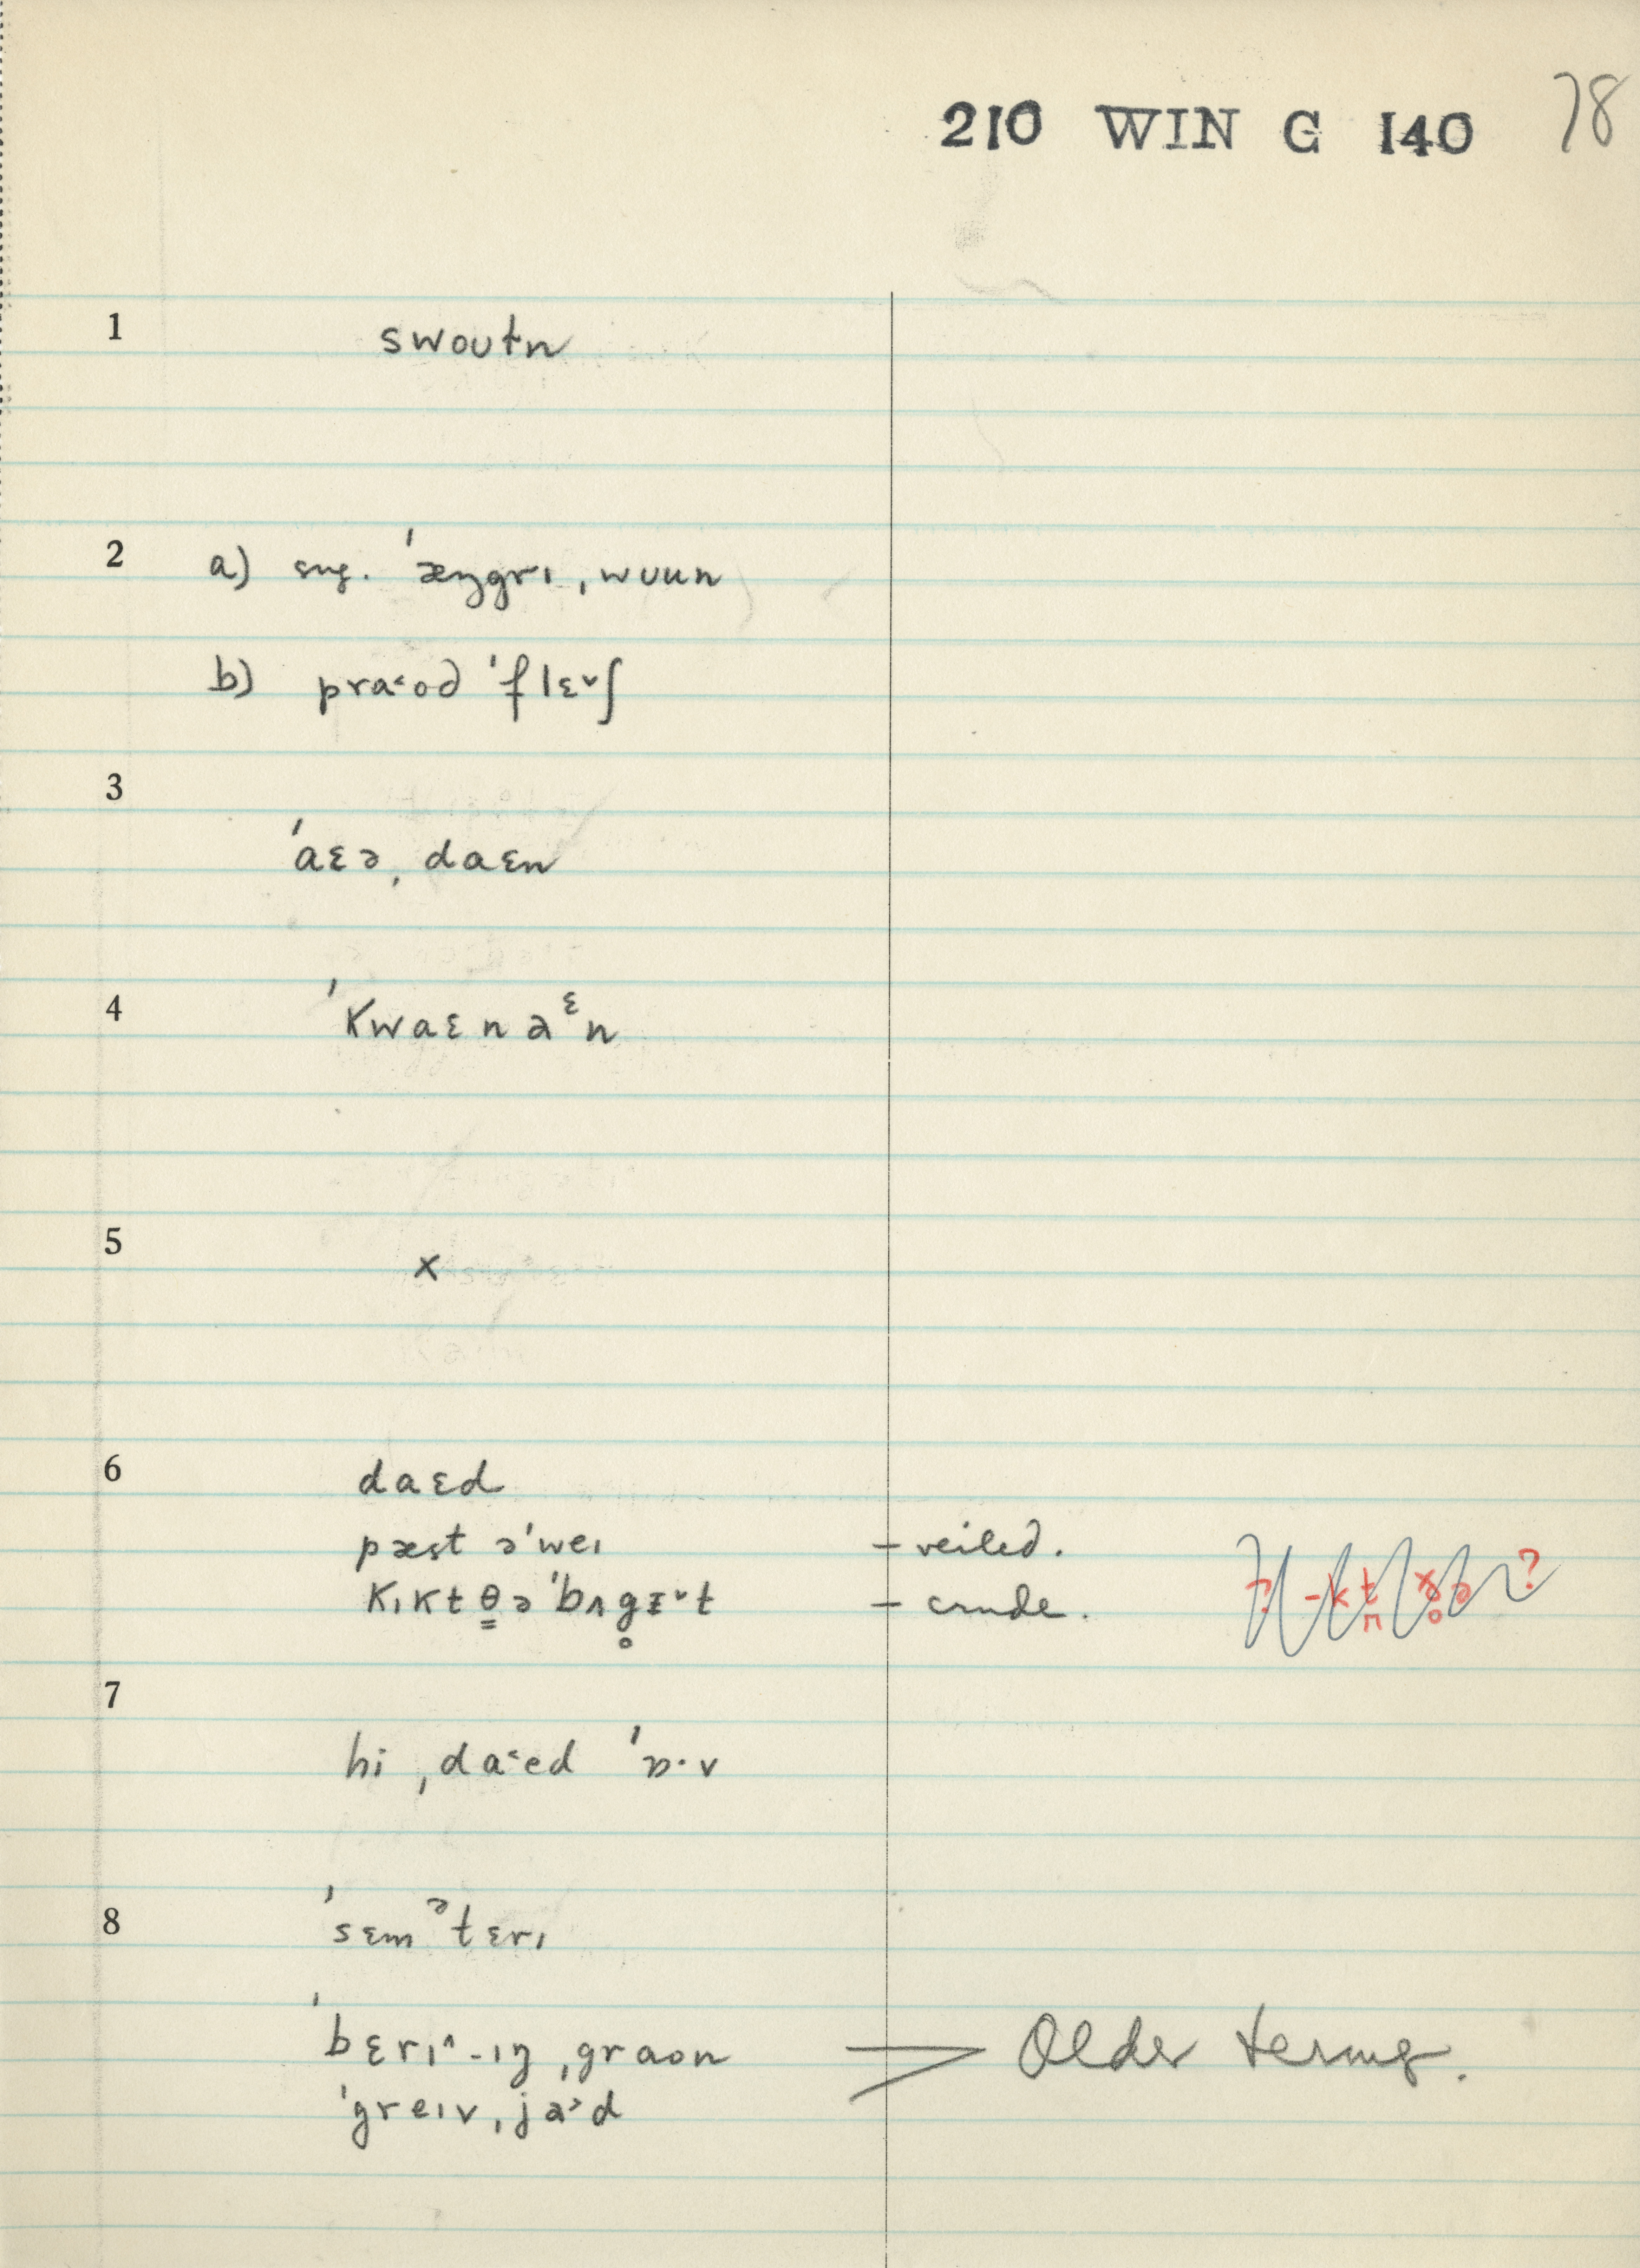 210 WIN G 140 78
1 swoutn
2 a) sug. ˈæŋgrɪ ˌwuun
b) praˑ˂od ˈflɛ˅ʃ
3
ˈaɛə ˌdaɛn
4 ˈkwaɛnəᵋn
5 x
6 daɛd
pæst əˈweɪ – veiled.
kɪkt θ̳ə ˈbʌg̥ɪ˅t – crude.
7
hi ˌda˂ed ˈɒ·v
8 ˈsɛmᵊtɛrɪ
ˈbɛrɪ˄-ɪŋ ˌgraon > Older terms.
ˈgreɪv ˌja˃d